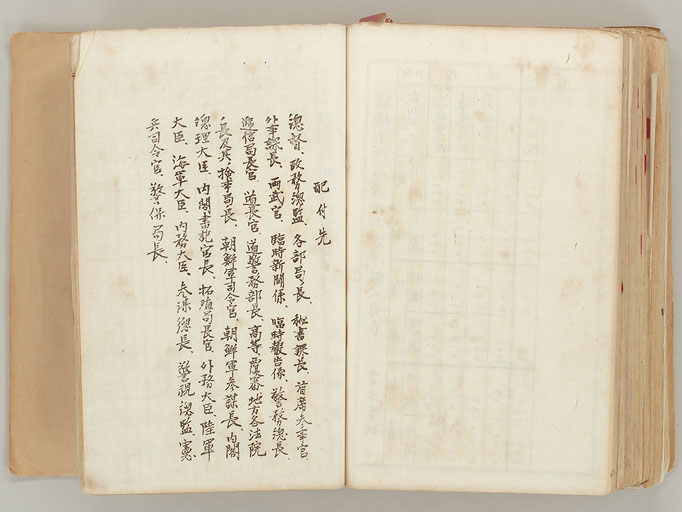 配付先
総督、政務総監、各部局長、秘書課長、首席参事官、
外事課長、両武官、臨時新聞係、臨時報告係、警務総長、
逓信局長官、道長官、道警務部長、高等覆審地方各法院
長及其検事局長、朝鮮軍司令官、朝鮮軍参謀長、内閣
総理大臣、内閣書記官長、拓殖局長官、外務大臣、陸軍
大臣、海軍大臣、内務大臣、参謀総長、警視総監、憲
兵司令官、警保局長、